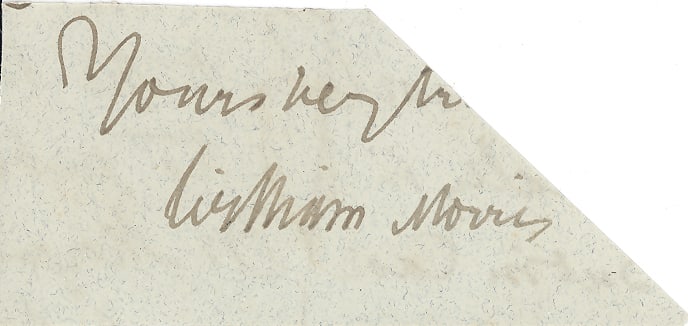 Yours very tr
William Morris